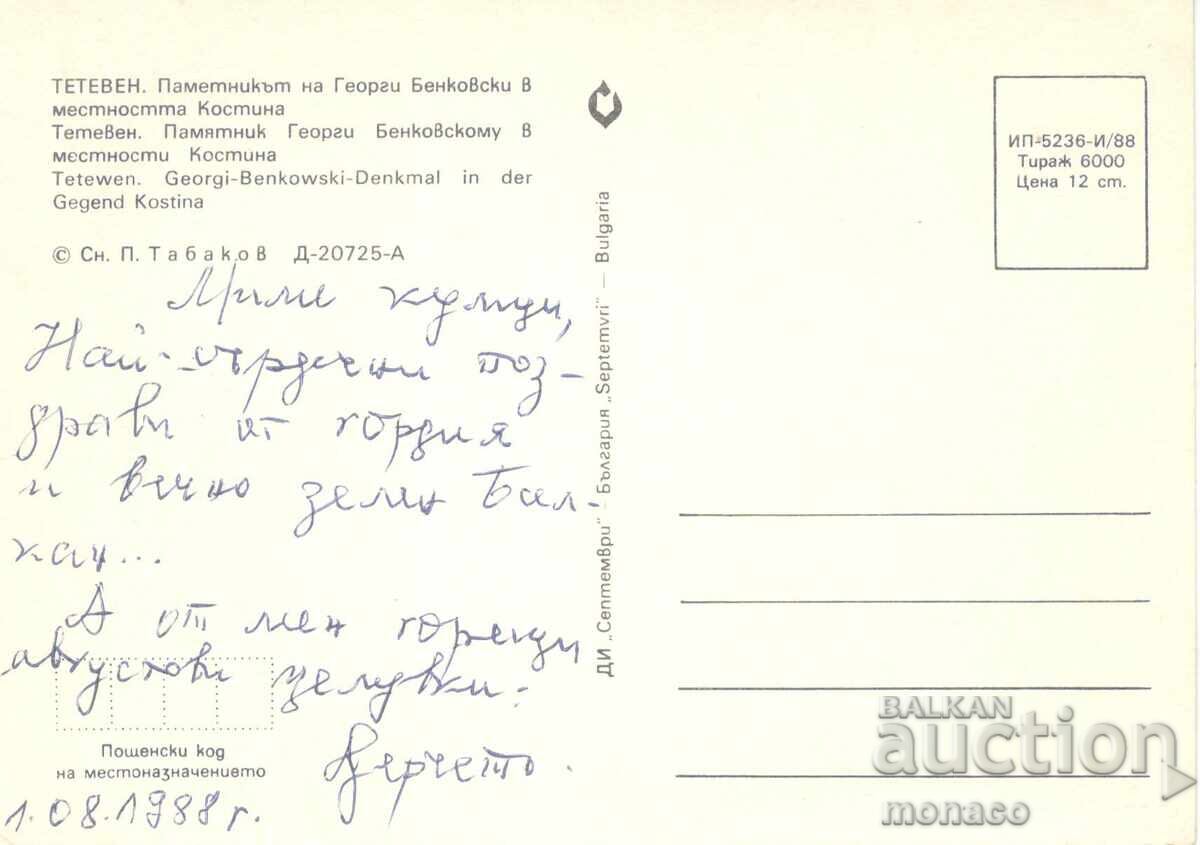 ТЕТЕВЕН. Паметникът на Георги Бенковски в
местността Костина
Тетевен. Памятник Георги Бенковскому в
местности Костина
Tetewen. Georgi-Benkowski-Denkmal in der
Gegend Kostina
© Сн. П. Табаков Д-20725-А
Мили кумци,
Най-сърдечни поз-
драви от гордия
и вечно зелен Бал-
кан...
А от мен горещи
августови целувки.
Верчето.
Пощенски код
на местоназначението
1.08.1988 г.
ДИ „Септември" - България „Septemvri" — Bulgaria
ИП-5236-И/88
Тираж 6000
Цена 12 ст.
BALKAN
auction
monaco